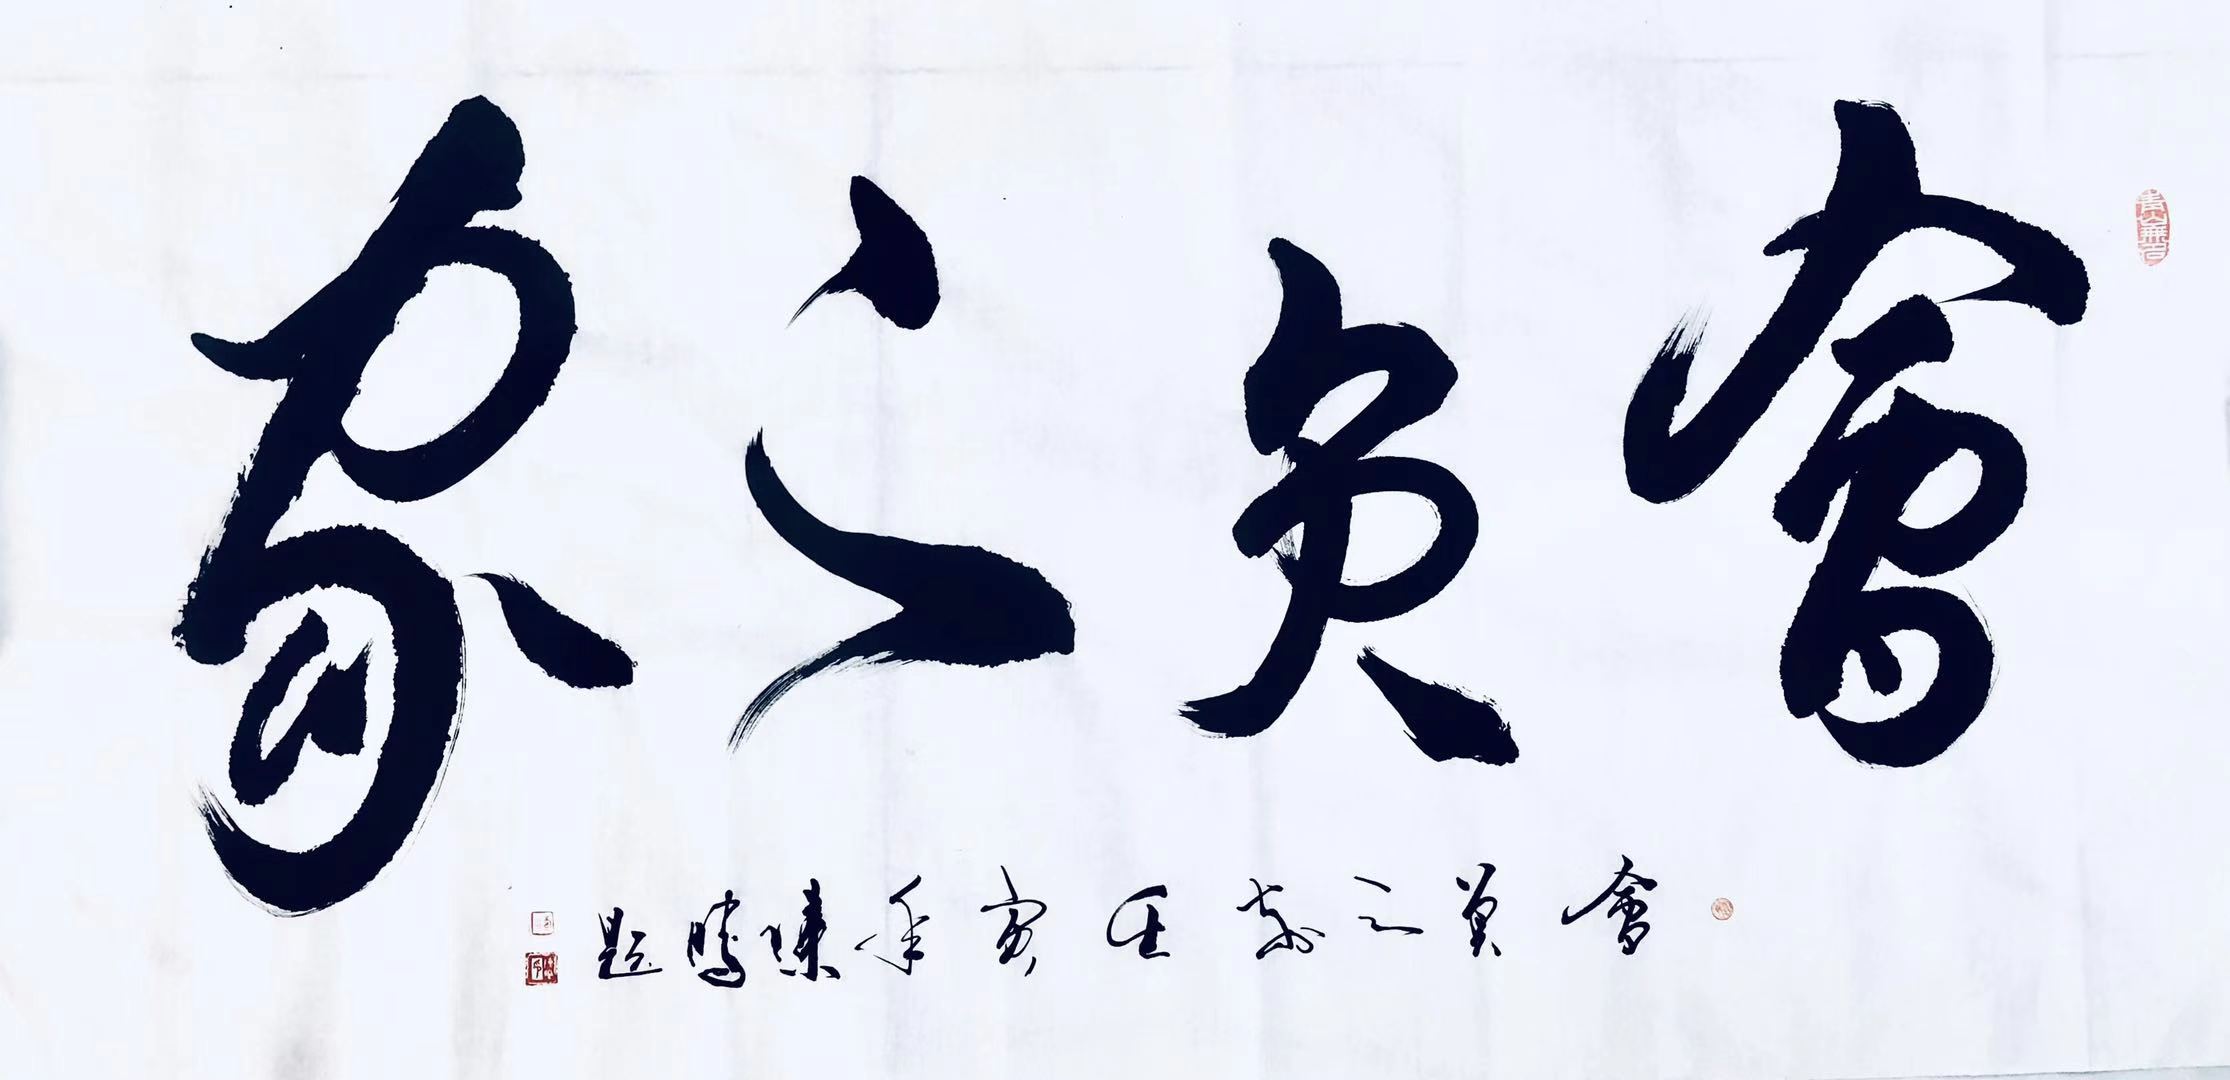 會員之家
會員之家 壬寅年 陳鵬題